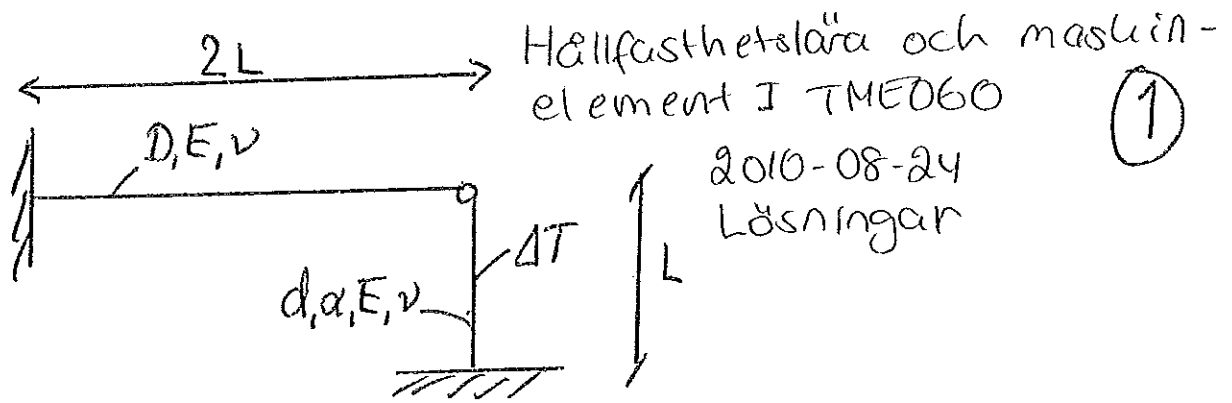 2L
Hållfasthetslära och maskin-
element I TME060
1
D, E, ν
2010-08-24
Lösningar
ΔT
L
d, α, E, ν